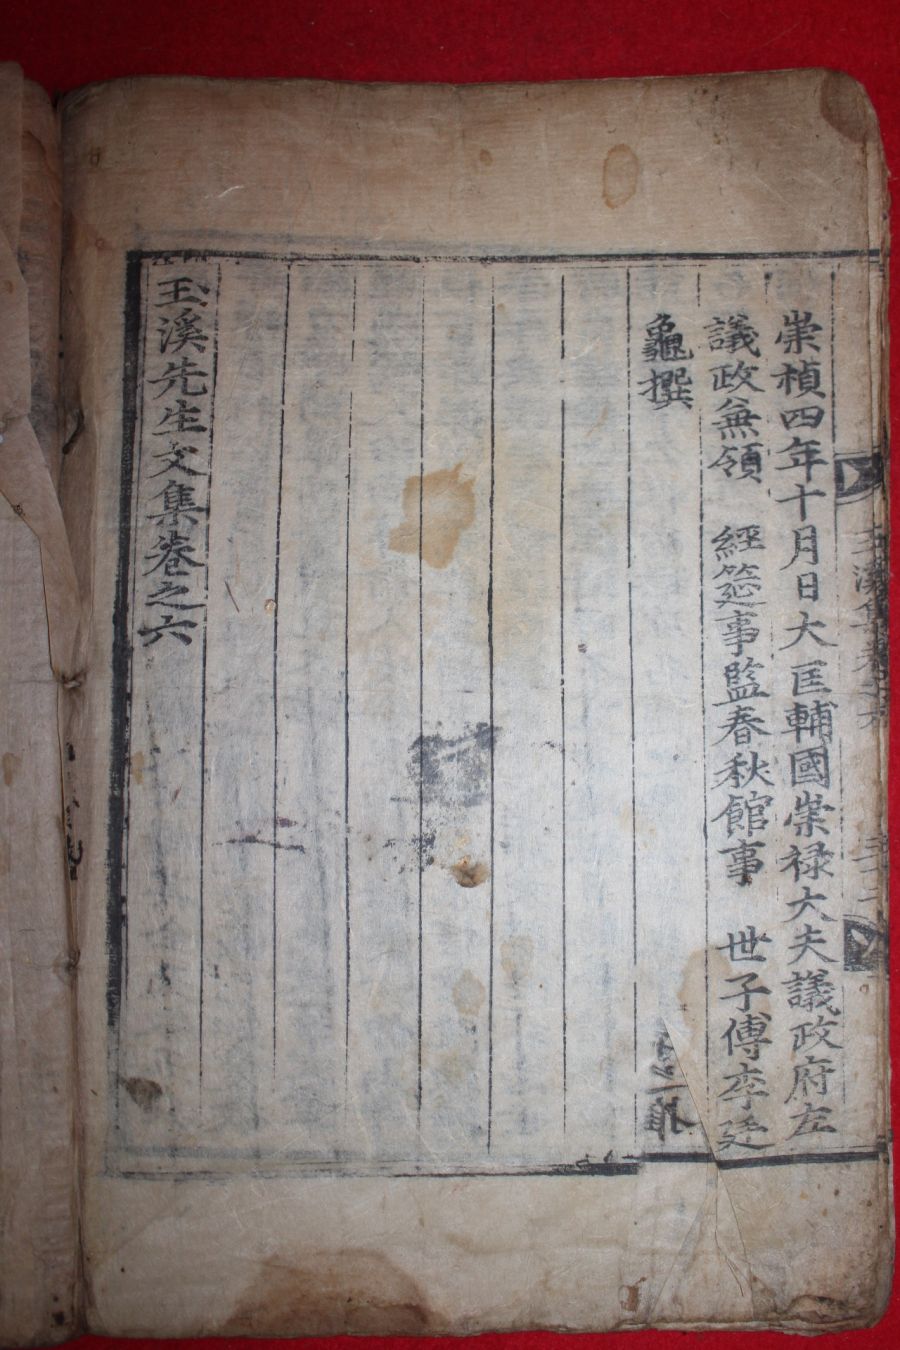 崇楨四年十月日大匡輔國崇禄大夫議政府左
議政兼領　經筵事監春秋館事　世子傅李廷
龜撰
玉溪先生文集卷之六
玉溪集卷之六